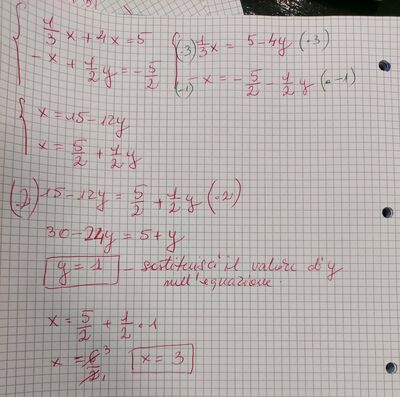 1/3 x + 4x = 5
-x + 1/2 y = -5/2
(·3) 1/3 x = 5 - 4y (·3)
(-1) -x = -5/2 - 1/2 y (·-1)
x = 15 - 12y
x = 5/2 + 1/2 y
(·2) 15 - 12y = 5/2 + 1/2 y (·2)
30 - 24y = 5 + y
y = 1 - sostituisci il valore di y
nell'equazione.
x = 5/2 + 1/2 · 1
x = 6/2 3 1 x = 3